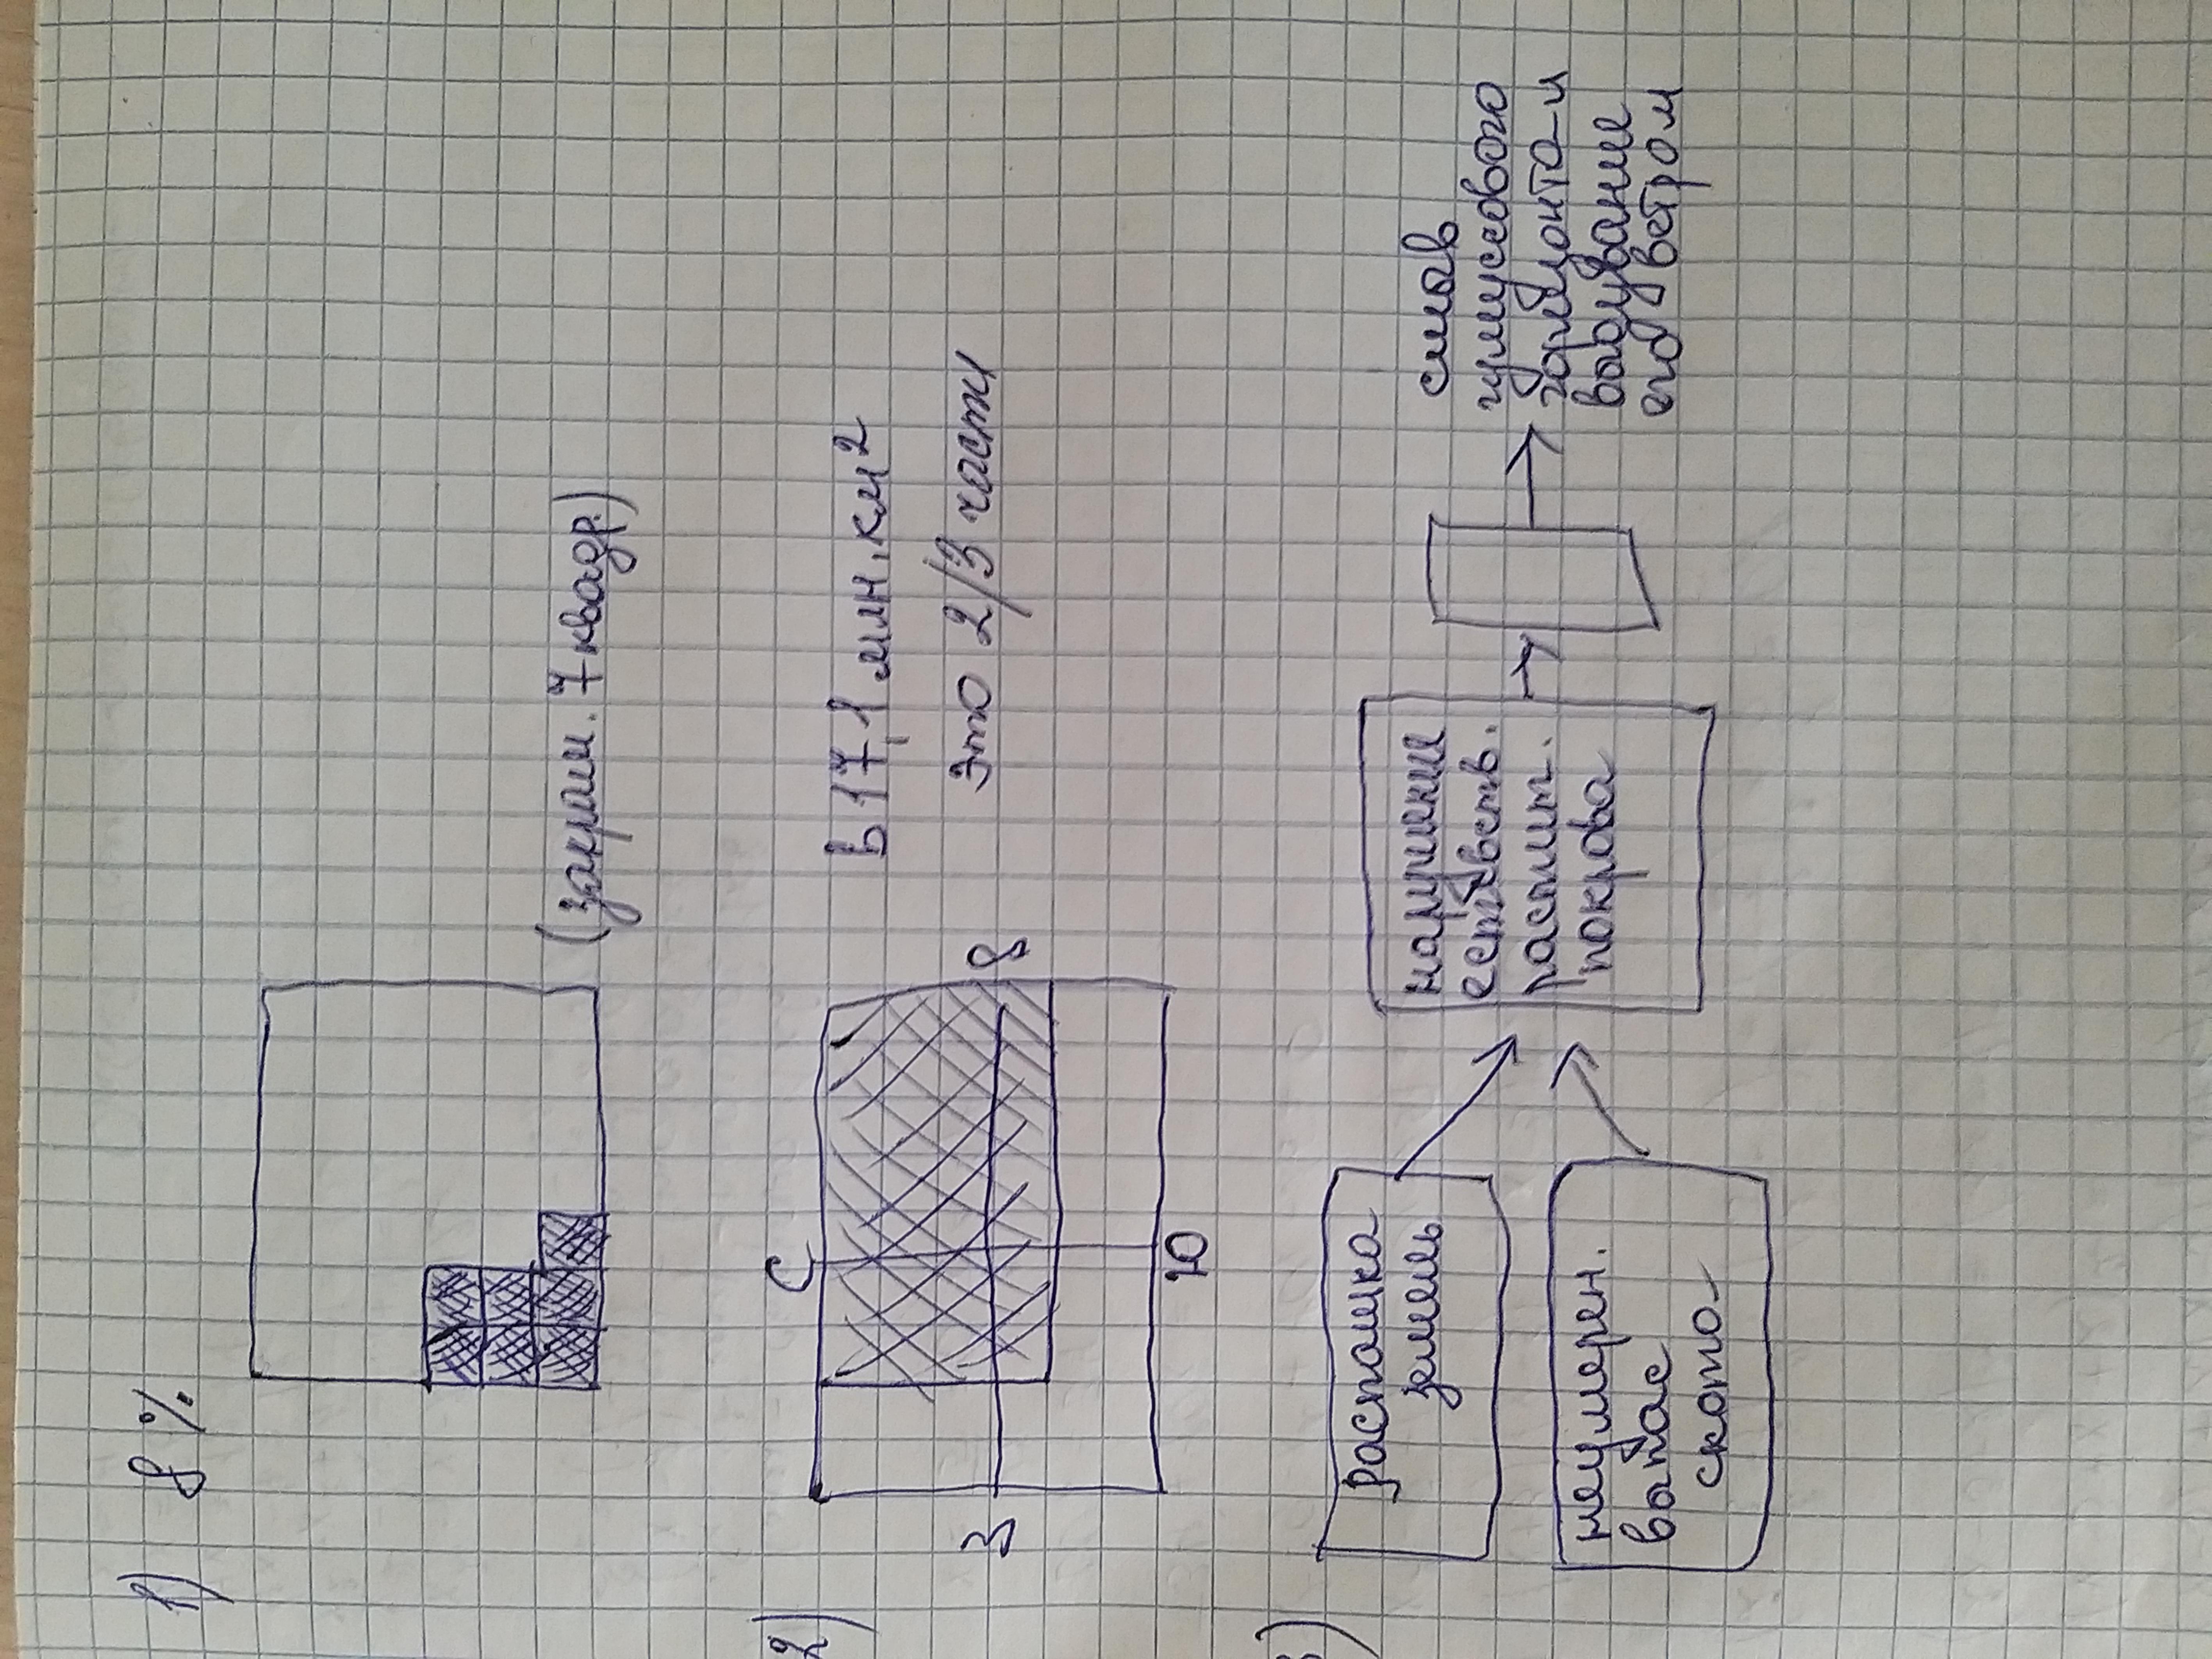 1) 8%
(закраш. 7 квадр.)
2)
С
З
В
Ю
в 17,1 млн.км²
это 2/3 части
3)
распашка
земель
неумерен.
выпас
ското-
нарушение
естеств.
растит.
покрова
смыв
гумусового
горизонта и
выдувание
его ветром